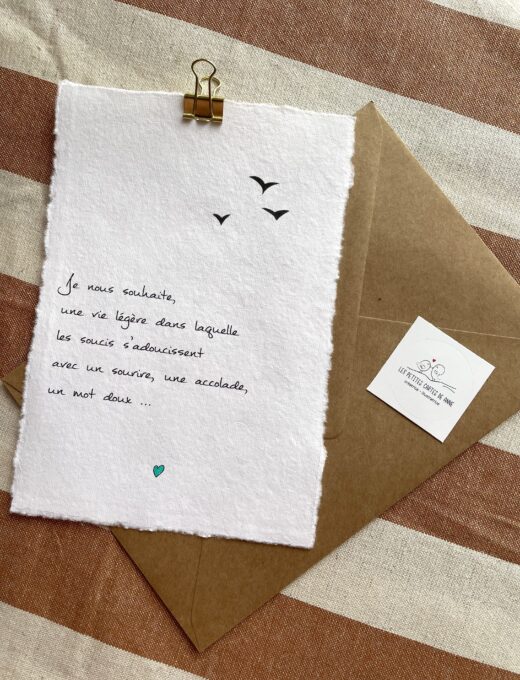 Je nous souhaite,
une vie légère dans laquelle
les soucis s'adoucissent
avec un sourire, une accolade,
un mot doux ...
LES PETITES CARTES DE ANNE